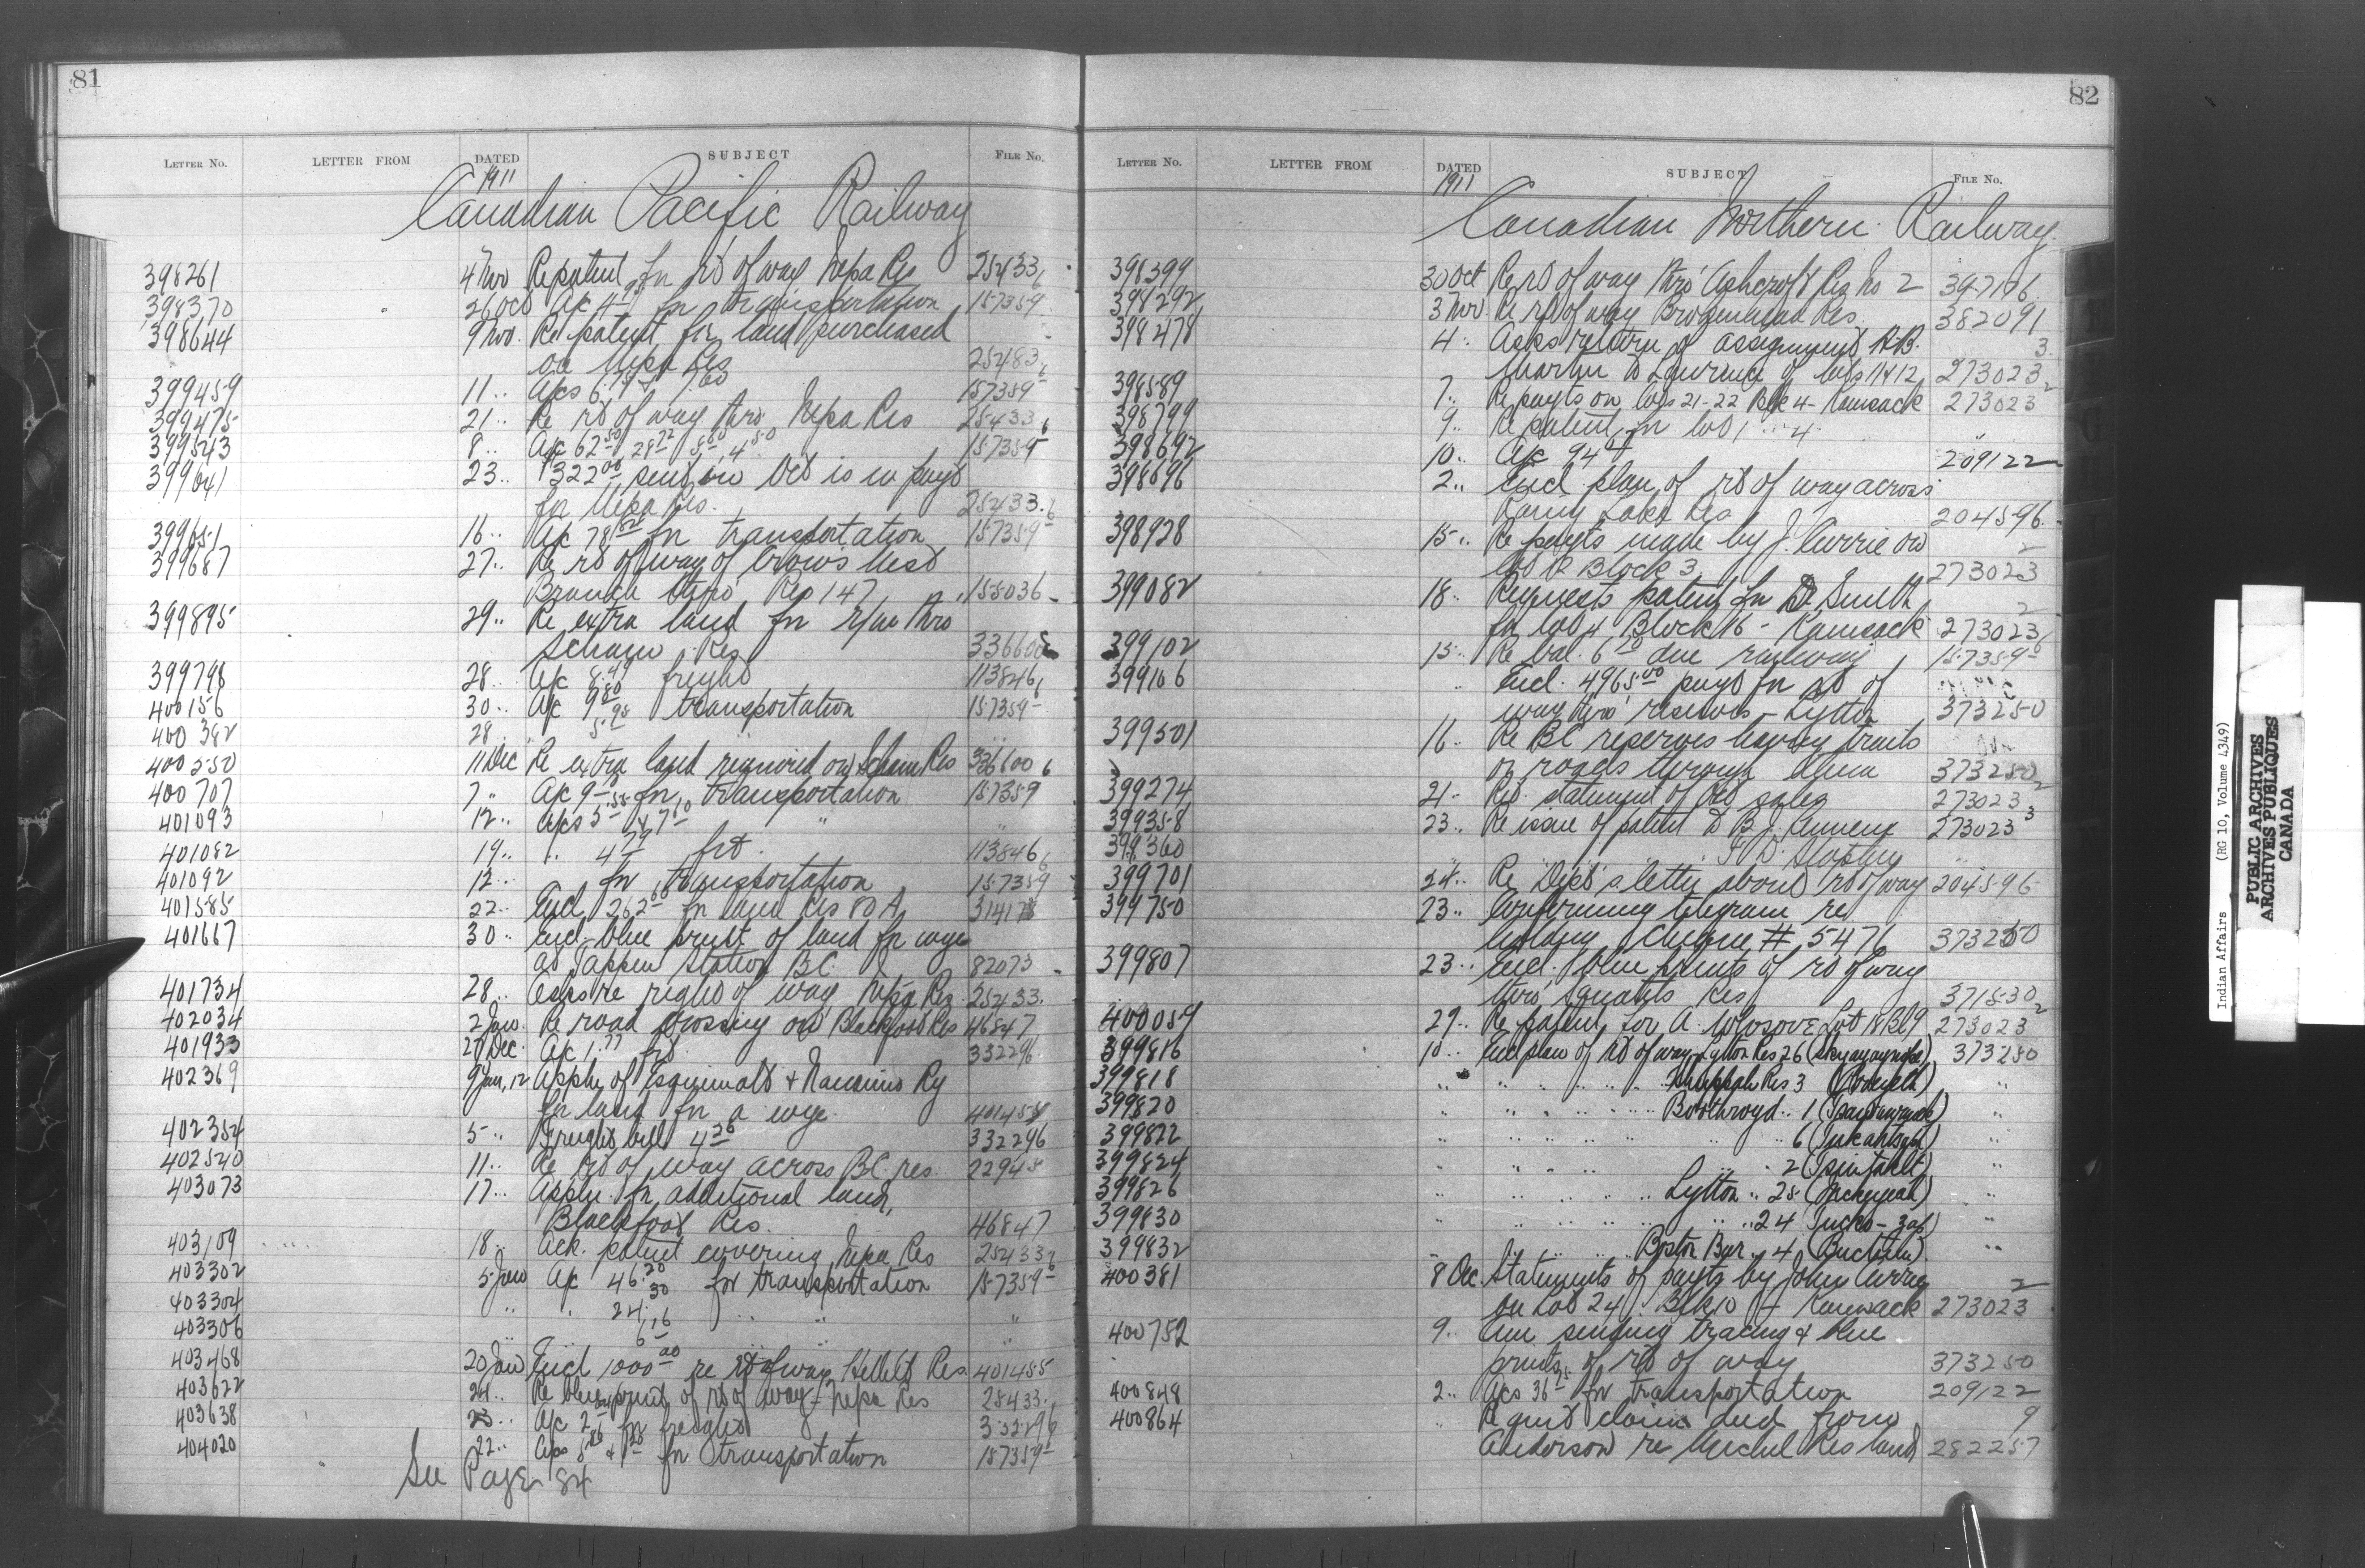 81
LETTER NO. LETTER FROM DATED SUBJECT FILE NO.
1911
Canadian Pacific Railway
398261 4 Nov Re patent for rt of way Nepa Res 25433
398370 26 Oct A/c for transportation 157359
398644 9 Nov. Re patent for land purchased
on Nepa Res
399459 11 .. A/cs 157359
399475 21 .. Re rt of way thro Nepa Res 25433
399543 8 .. A/c 62 157359
399641 23 .. $322 00 sent in Oct is in payt
for Nepa Res. 25433
399651 16 .. A/c 78 for transportation 157359
399687 27 .. Re rt of way of Crow's Nest
Branch thro' Res 147 155036
399895 29 .. Re extra land for r/w thro
Res 336600
399798 28 .. A/c 8.49 freight 113846
400156 30 .. A/c 9 80 transportation 157359
400382 28 .. 5.95
400550 11 Dec Re extra land required on Res 336600
400707 7 " A/c 9 for transportation 157359
401093 12 .. A/cs 5 & 7 10 "
401082 19 .. .. 4 79 frt. 113846
401092 12 .. for transportation 157359
401585 22 .. Encl 262 00 for land Res 80 A 314178
401667 30 .. Encl blue print of land for wye
at Tappen Station BC. 82073
401734 28 .. Asks re right of way Nepa Res 25433.
402034 2 Jan. Re road crossing on Blackfoot Res 46847
401933 27 Dec. A/c 1.77 frt 332296
402369 9 Jan, 12 Appln of Esquimalt & Nanaimo Ry
for land for a wye.
402354 5 .. Freight bill 4 36 332296
402540 11 .. Re rt of way across BC res. 22945
403073 17 .. Appln. for additional land,
Blackfoot Res. 46847
403109 18 .. Ack. patent covering Nepa Res 25433
403302 5 Jan A/c 46.20 for transportation 157359
403304 " " 24.30 .. " "
403306 6 16 "
403468 20 Jan Encl 1000 00 re rt of way Res. 401455
403622 24 .. Re blue print of rt of way - Nepa Res
403638 23 .. A/c 2 for freight 332296
404020 22 .. A/cs for transportation 157359
See Page 84
82
LETTER NO. LETTER FROM DATED SUBJECT FILE NO.
1911
Canadian Northern Railway.
398399 30 Oct Re rt of way thro' Ashcroft Res No 2
398292 3 Nov. Re rt of way Brokenhead Res. 382091
398478 4 .. Asks return of assignment
Martin to Lawrence of lots 11 & 12 273023 3
398589 7 .. Re payts on lots 21-22 Blk 4 - Kamsack 273023 2
398799 9 .. Re patent for lot 1 .. 4 "
398692 10 .. A/c 94 209122
398696 2 .. Encl plan of rt of way across
Rainy Lake Res 204596.
398928 15 .. Re payts made by J. Currie on
Block 3 273023 2
399082 18 .. Requests patent for Smith
for lot 4 Block 16 - Kamsack 273023 2
399102 15 .. Re bal. 6 due railway 157359
399166 .. Encl. 4965.00 payt for rt of
way thro' reserves - Lytton 373250
399501 16 .. Re BC reserves having trails
or roads through them 373250
399274 21 - statement of Oct sales 273023 2
399358 23 .. Re issue of patent to B.J. 273023 3
399360
399701 24 .. Re Dept's letter about rt of way 204596
399750 23 .. Confirming telegram re
cheque # 5476 373250
399807 23 .. Encl. blue prints of rt of way
thro' Squatits Res 371530
400059 29 .. Re patent for A. Lot 18 Bl 9 273023 2
399816 10 .. Encl plan of rt of way Lytton Res 26 373250
399818 .. .. .. .. .. Res 3 "
399820 .. .. .. .. .. Boothroyd .. 1 "
399822 .. .. .. .. .. .. 6 "
399824 .. .. .. .. .. 2 "
399826 .. .. .. .. .. Lytton .. 28 "
399830 .. .. .. .. .. .. 24 "
399832 .. .. .. .. Boston Bar .. 4 "
400381 8 Dec. Statements of payts by John Currey
on Lot 24 Blk 10 Kamsack 273023 2
400752 9 .. Am sending tracing & blue
prints of rt of way 373250
400848 2 .. A/cs 36 for transportation 209122
400864 " Re quit claim deed from
Anderson re Michel Res land 282257 9
Indian Affairs (RG 10, Volume 4349)
PUBLIC ARCHIVES
ARCHIVES PUBLIQUES
CANADA